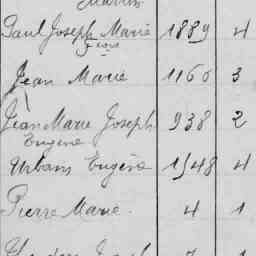 Paul Joseph Marie 1889 4
Jean Marie 1166 3
Jean Marie Joseph 938 2
Eugène
Urbain Eugène 1548 4
Pierre Marie. 4 1